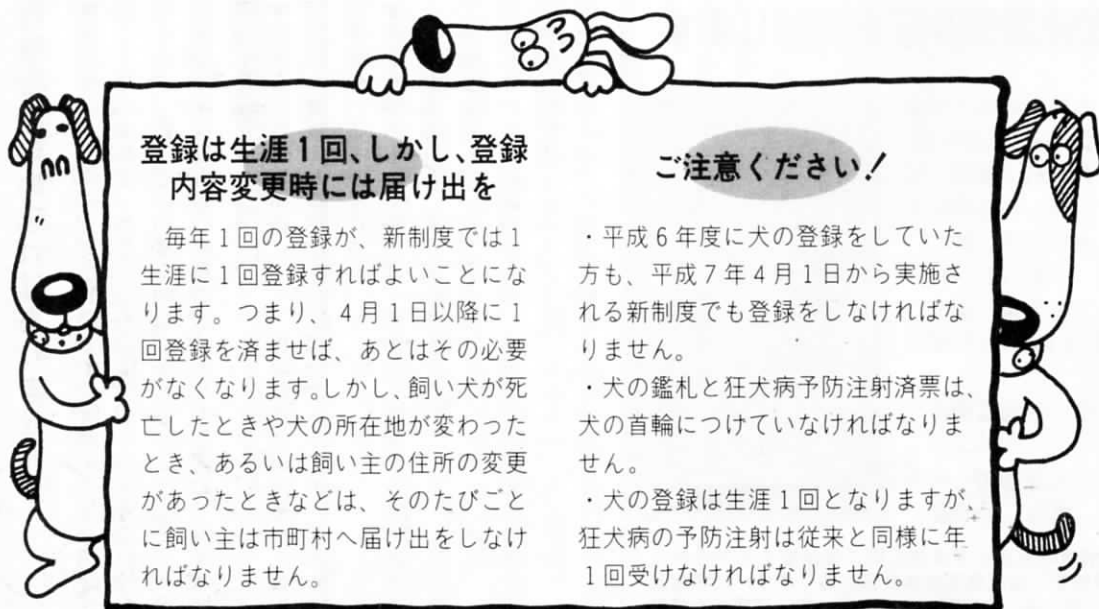 登録は生涯1回、しかし、登録
内容変更時には届け出を
毎年1回の登録が、新制度では1
生涯に1回登録すればよいことにな
ります。つまり、4月1日以降に1
回登録を済ませば、あとはその必要
がなくなります。しかし、飼い犬が死
亡したときや犬の所在地が変わった
とき、あるいは飼い主の住所の変更
があったときなどは、そのたびごと
に飼い主は市町村へ届け出をしなけ
ればなりません。
ご注意ください!
・平成6年度に犬の登録をしていた
方も、平成7年4月1日から実施さ
れる新制度でも登録をしなければな
りません。
・犬の鑑札と狂犬病予防注射済票は、
犬の首輪につけていなければなりま
せん。
・犬の登録は生涯1回となりますが、
狂犬病の予防注射は従来と同様に年
1回受けなければなりません。